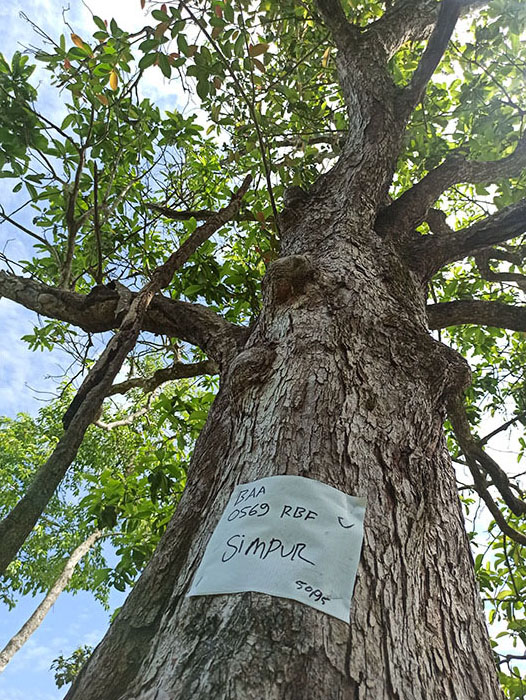 BAA
0569 RBF
SimPUR